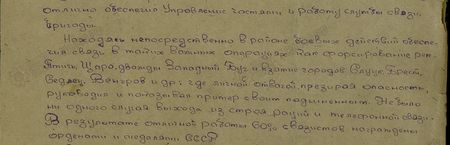 отлично обеспечил Управление частями и работу службы связи
бригады.
Находясь непосредственно в районе боевых действий обеспе-
чил связь в таких важных операциях как форсирование рек
Птичь, Щаро, дважды Западный Буг и взятие городов Слуцк, Брест,
Седлец, Венгров и др. где личной отвагой, презирая опасность,
руководил и показывал пример своим подчиненным. Не было
ни одного случая выхода из строя раций и телефонной связи.
В результате отличной работы 60% связистов награждены
орденами и медалями СССР